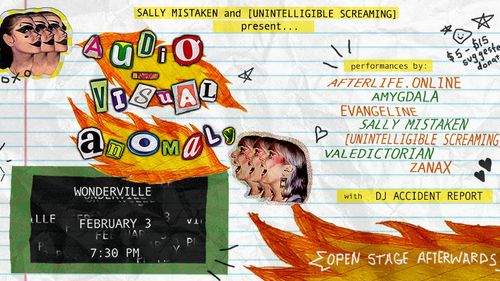 SALLY MISTAKEN and [UNINTELLIGIBLE SCREAMING]
present...
AUDiO
ViSUAL
anOMALy
WONDERVILLE
FEBRUARY 3
7:30 PM
$5-$15
suggested
donat
performances by:
AFTERLIFE.ONLINE
AMYGDALA
EVANGELINE
SALLY MISTAKEN
[UNINTELLIGIBLE SCREAMING
VALEDICTORIAN
ZANAX
with DJ ACCIDENT REPORT
OPEN STAGE AFTERWARDS